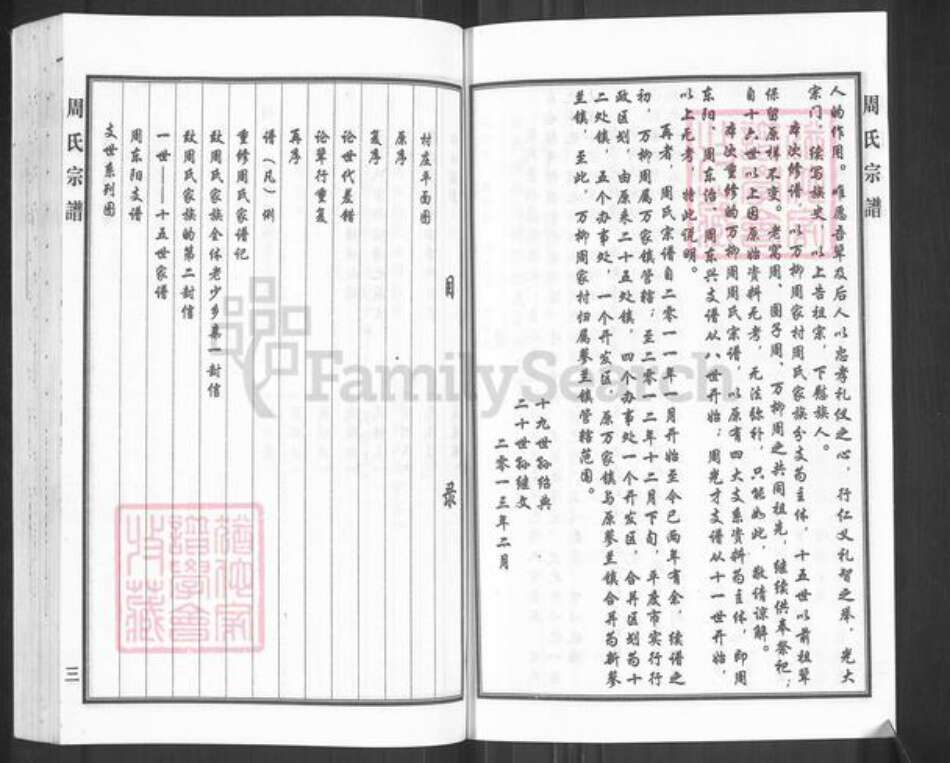 周氏宗譜
人的作用。唯愿吾辈及后人以忠孝礼仪之心，行仁义礼智之举，光大
宗门，续写族史，以上告祖宗，下慰族人。
本次修谱，以万柳周家村周氏家族分支为主体，十五世以前祖辈
保留原样不变。老窝周、圈子周、万柳周之共同祖先，继续供奉祭祀；
自十六世以上因原始资料无考，无法弥补，只能如此，敬请谅解。
本次重修的万柳周周氏宗谱，以原有四大支系资料为主体，即周
东阳、周东治、周东兴支谱从八世开始；周光才支谱从十一世开始，
以上无考，特此说明。
再者，周氏宗谱自二零一一年一月开始至今已两年有余，续谱之
初，万柳周属万家镇管辖；至二零一二年十二月下旬，平度市实行行
政区划，由原来二十五处镇，四个办事处一个开发区，合并区划为十
二处镇，五个办事处，一个开发区，原万家镇与原蓼兰镇合并为新蓼
兰镇，至此，万柳周家村归属蓼兰镇管辖范围。
十九世孙绍典
二十世孙继文
二零一三年二月
目 录
村庄平面图
原序
复序
论世代差错
论辈行重复
再序
谱（凡）例
重修周氏家谱记
致周氏家族全体老少乡亲一封信
致周氏家族的第二封信
一世——十五世家谱
周东阳支谱
支世系列图
周氏宗譜
三
FamilySearch